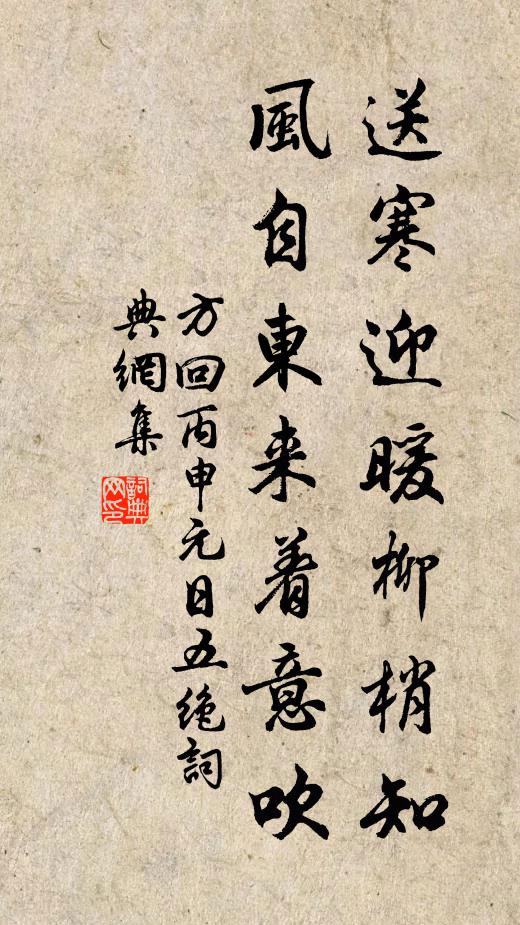 送寒迎暖柳梢知
風自東来着意吹
方回丙申元日五绝詞
典網集
詞典
网印